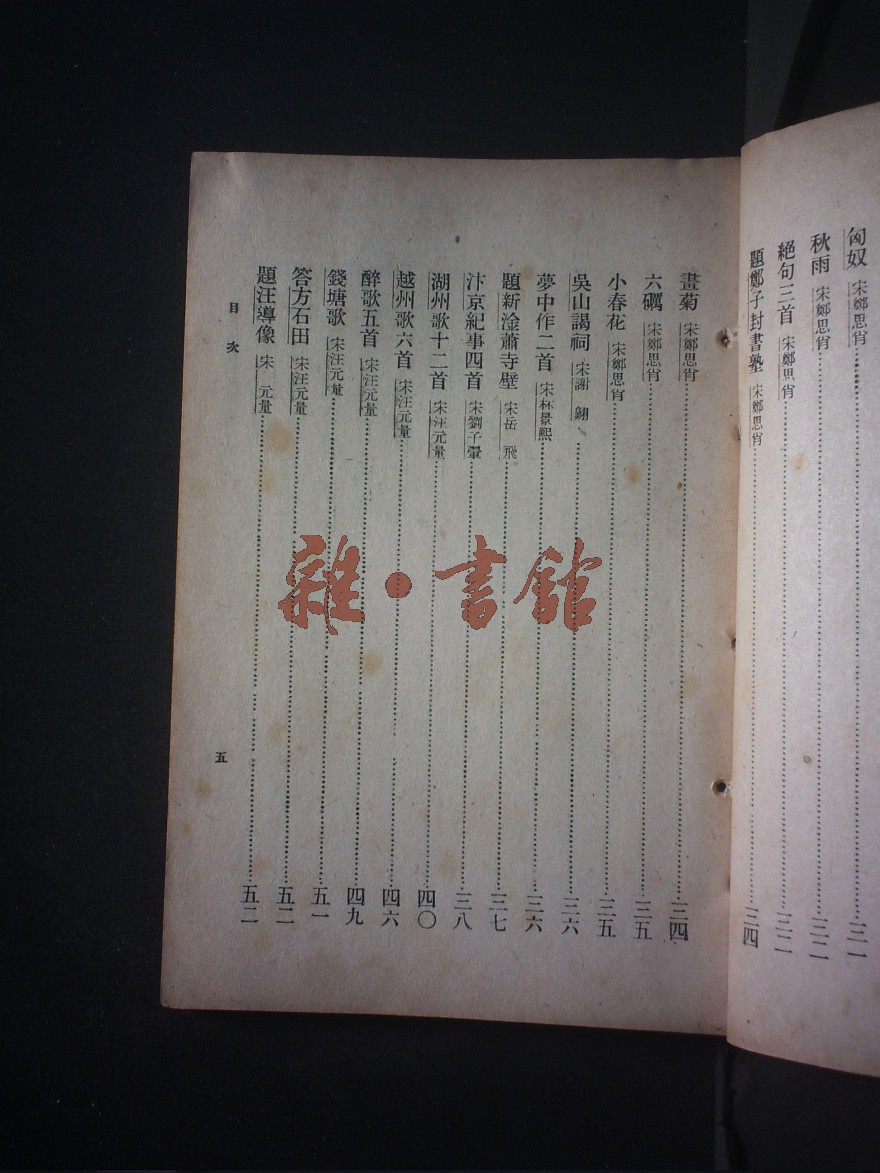 匈奴 宋鄭思肖 三一
秋雨 宋鄭思肖 三二
絕句三首 宋鄭思肖 三二
題鄭子封書塾 宋鄭思肖 三四
畫菊 宋鄭思肖 三四
六礪 宋鄭思肖 三五
小春花 宋鄭思肖 三五
吳山謁祠 宋謝 翱 三六
夢中作二首 宋林景熙 三六
題新淦蕭寺壁 宋岳 飛 三七
汴京紀事四首 宋劉子翬 三八
湖州歌十二首 宋汪元量 四〇
越州歌六首 宋汪元量 四六
醉歌五首 宋汪元量 四九
錢塘歌 宋汪元量 五一
答方石田 宋汪元量 五二
題汪導像 宋 元量 五二
目次
五
雜·書館